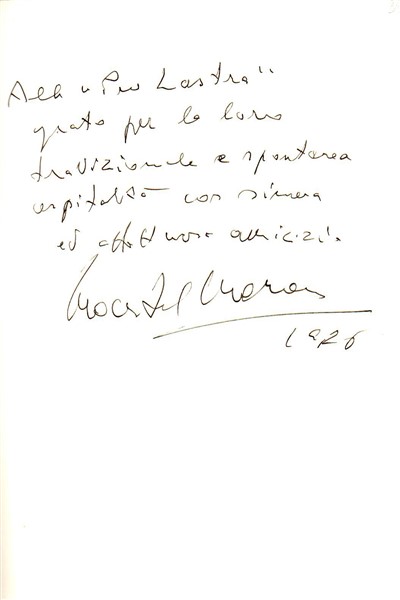 Alla "Pro Lastra"
grato per la loro
tradizionale e spontanea
ospitalità con sincera
ed affettuosa amicizia